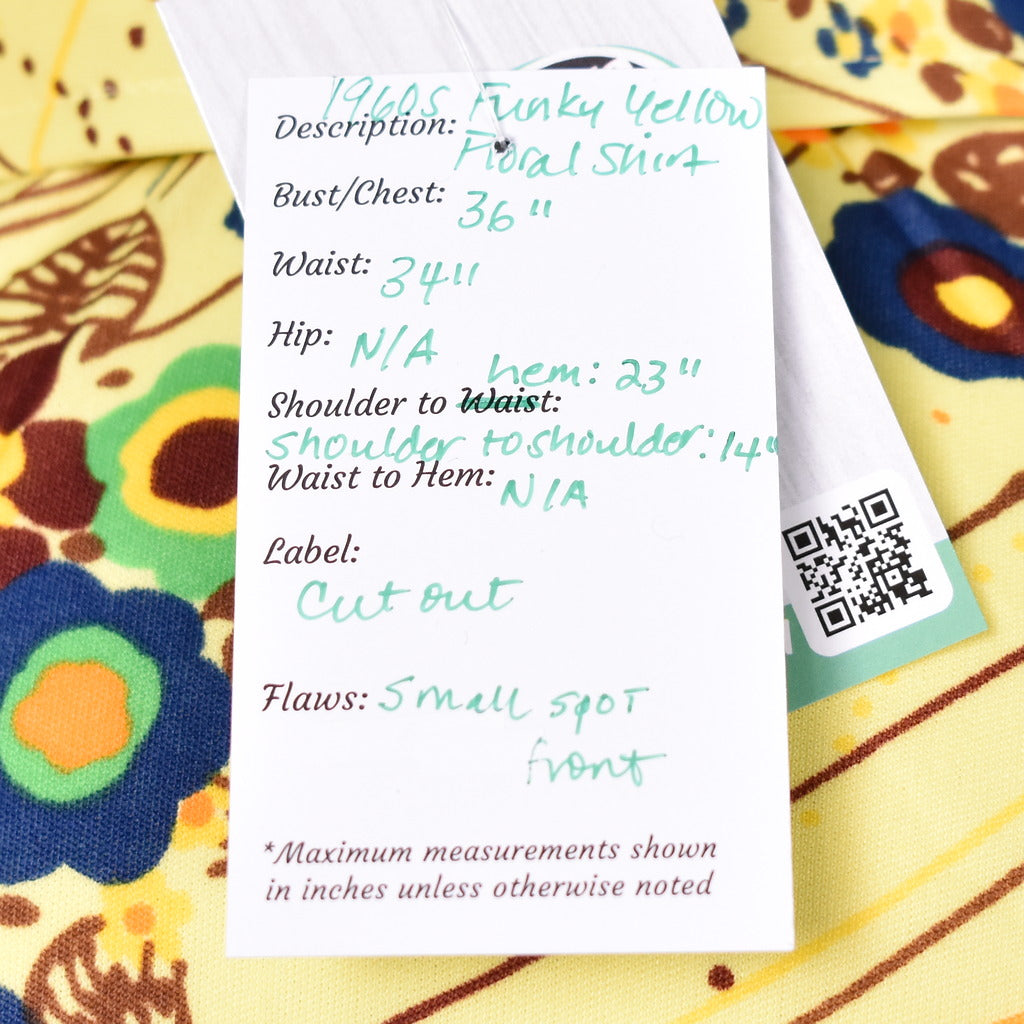 1960s Funky Yellow
Description:
Floral Shirt
Bust/Chest: 36"
Waist: 34"
Hip: N/A
hem: 23"
Shoulder to Waist:
Shoulder to shoulder: 14"
Waist to Hem: N/A
Label:
Cut out
Flaws: Small spot
front
*Maximum measurements shown
in inches unless otherwise noted